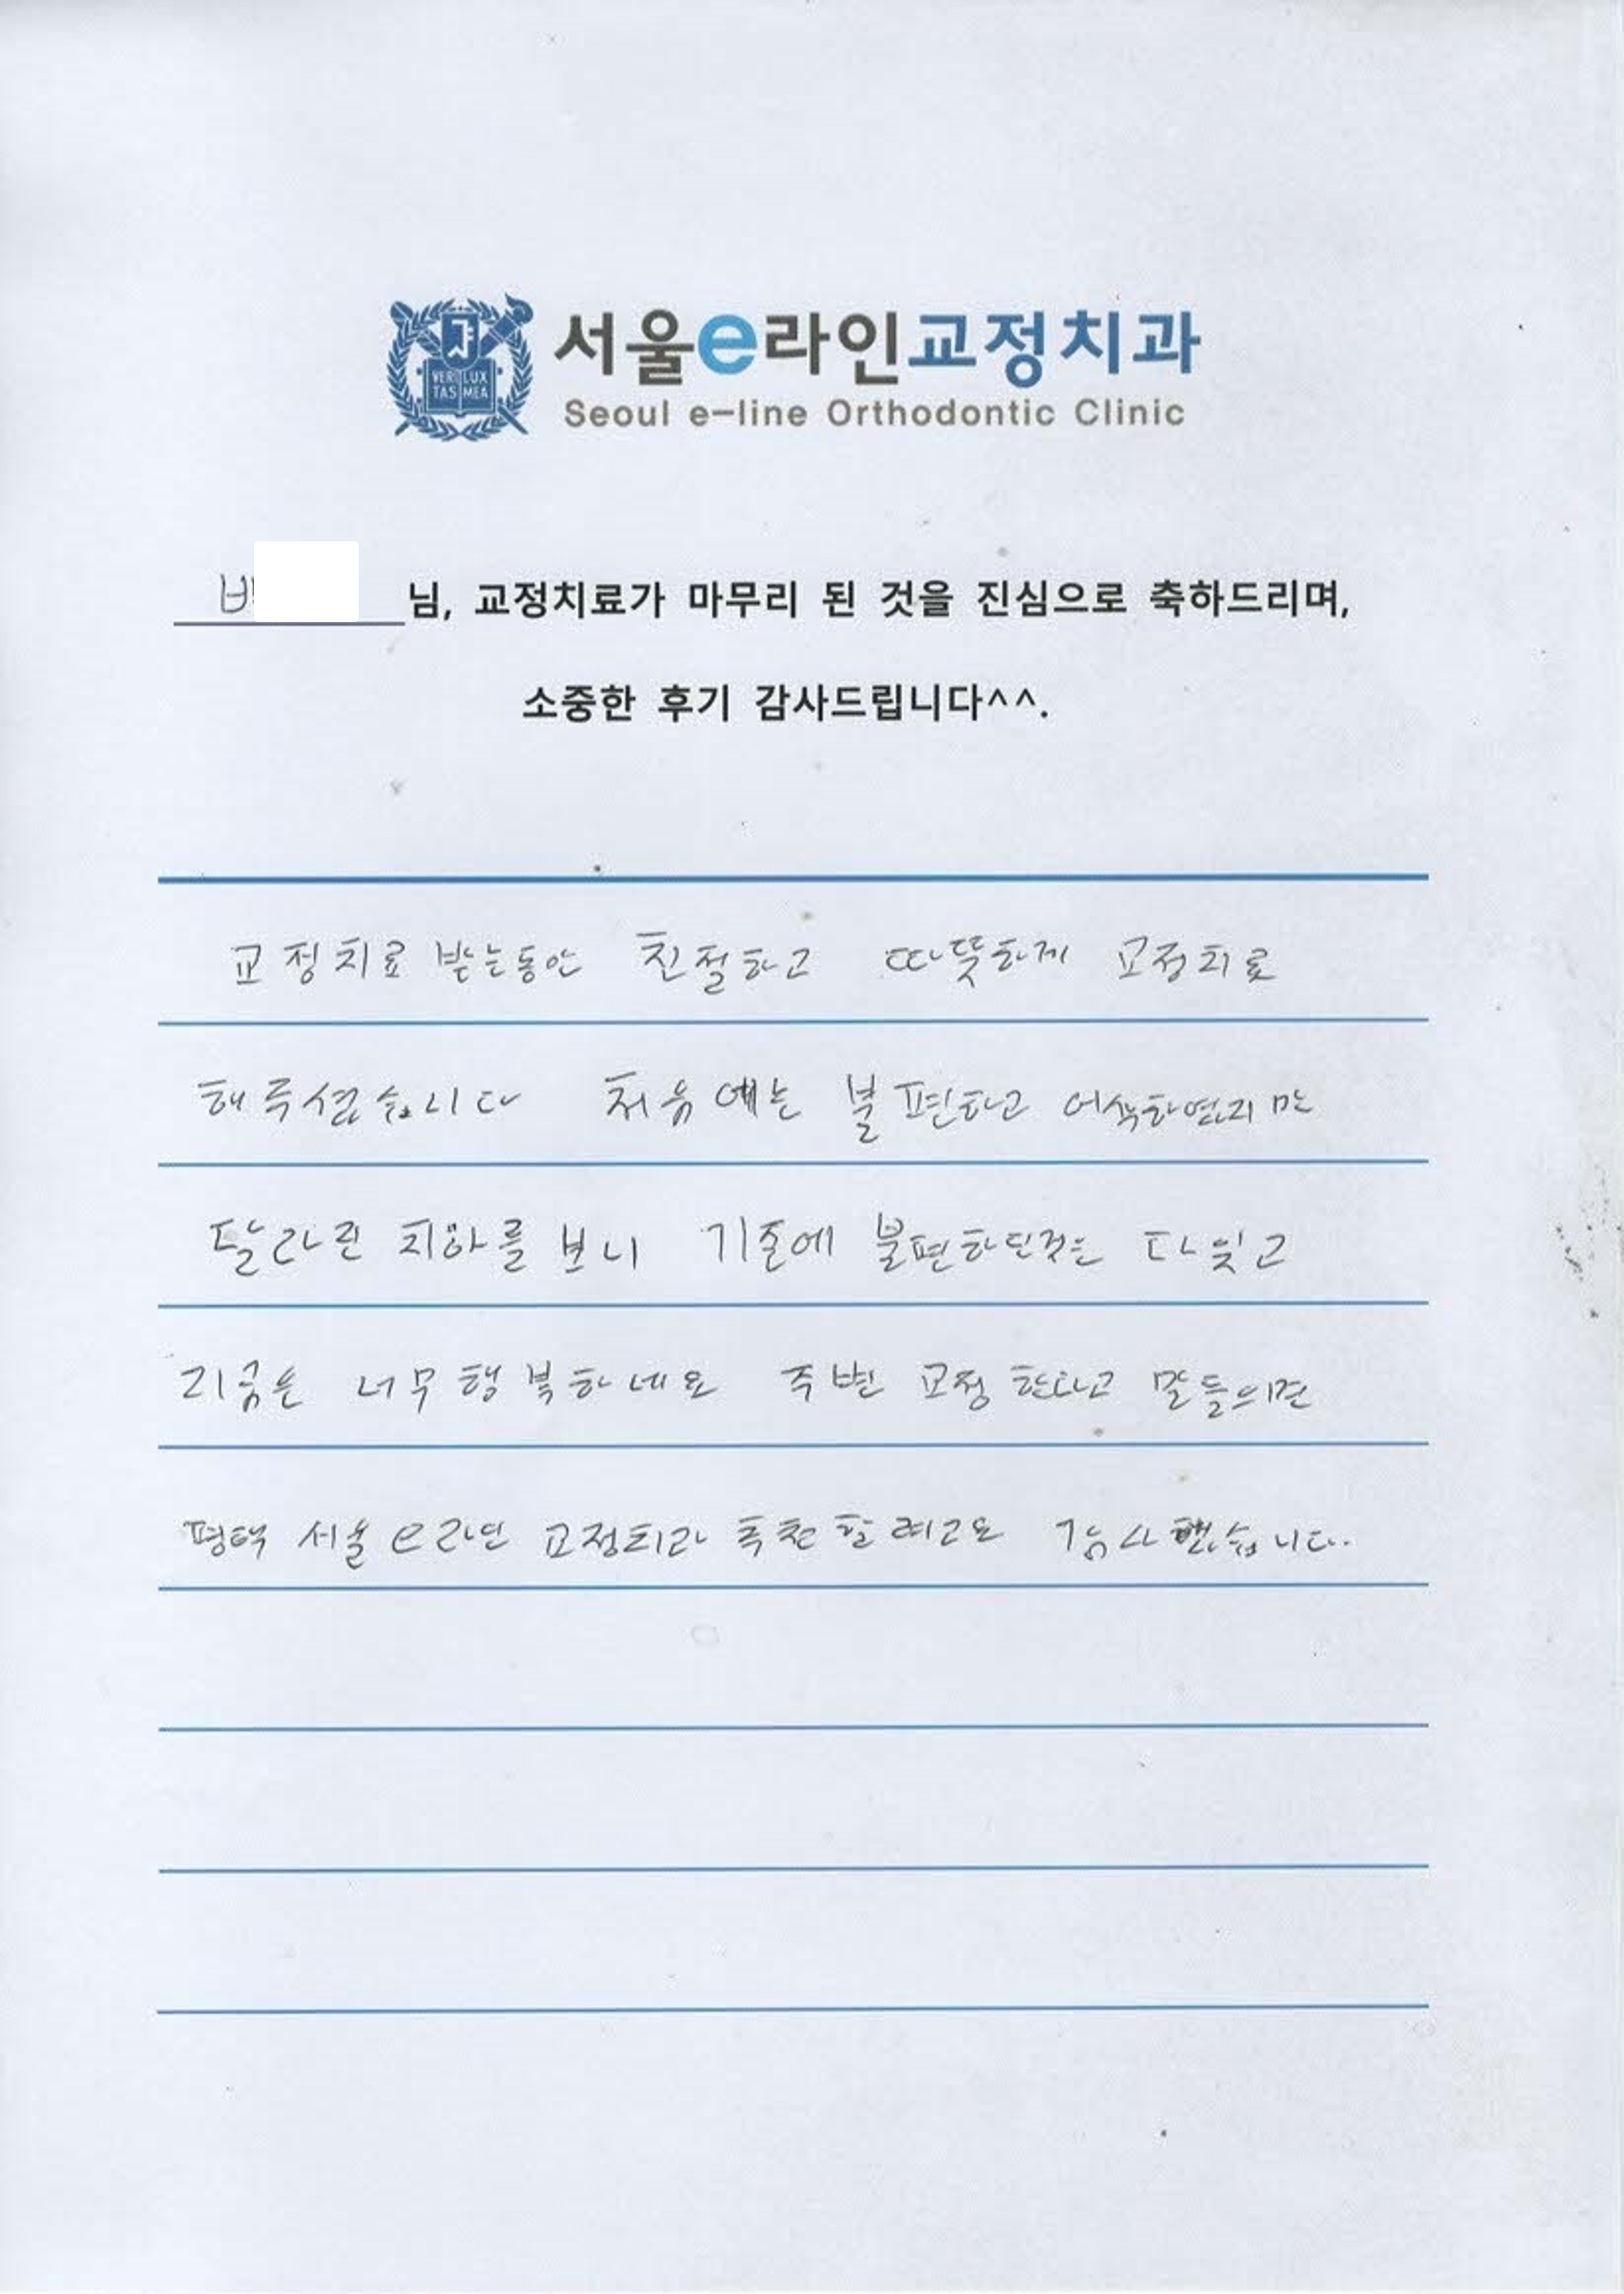 서울e라인교정치과
Seoul e-line Orthodontic Clinic
VERI LUX
TAS MEA
님, 교정치료가 마무리 된 것을 진심으로 축하드리며,
소중한 후기 감사드립니다^^.
교정치료 받는동안 친절하고 따뜻하게 교정치료
해주셨습니다 처음에는 불편하고 어색하였지만
달라진 치아를 보니 기존에 불편하던것은 다잊고
지금은 너무행복하네요 주변 교정한다고 말들으면
평택 서울e라인 교정치과 추천할려고요 감사했습니다.